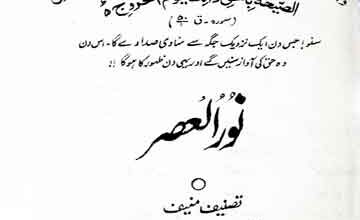 الصیحة بالحق ذلک یوم الخروج ہ
(سورہ ۔ ق ۔ پ )
سنو! جس دن ایک نزدیک جگہ سے منادی صدا دے گا ۔ اس دن
وہ حق کی آواز سنیں گے اور یہی دن ظہور کا ہوگا !!
نُورُ العصر
تصنیف منیف